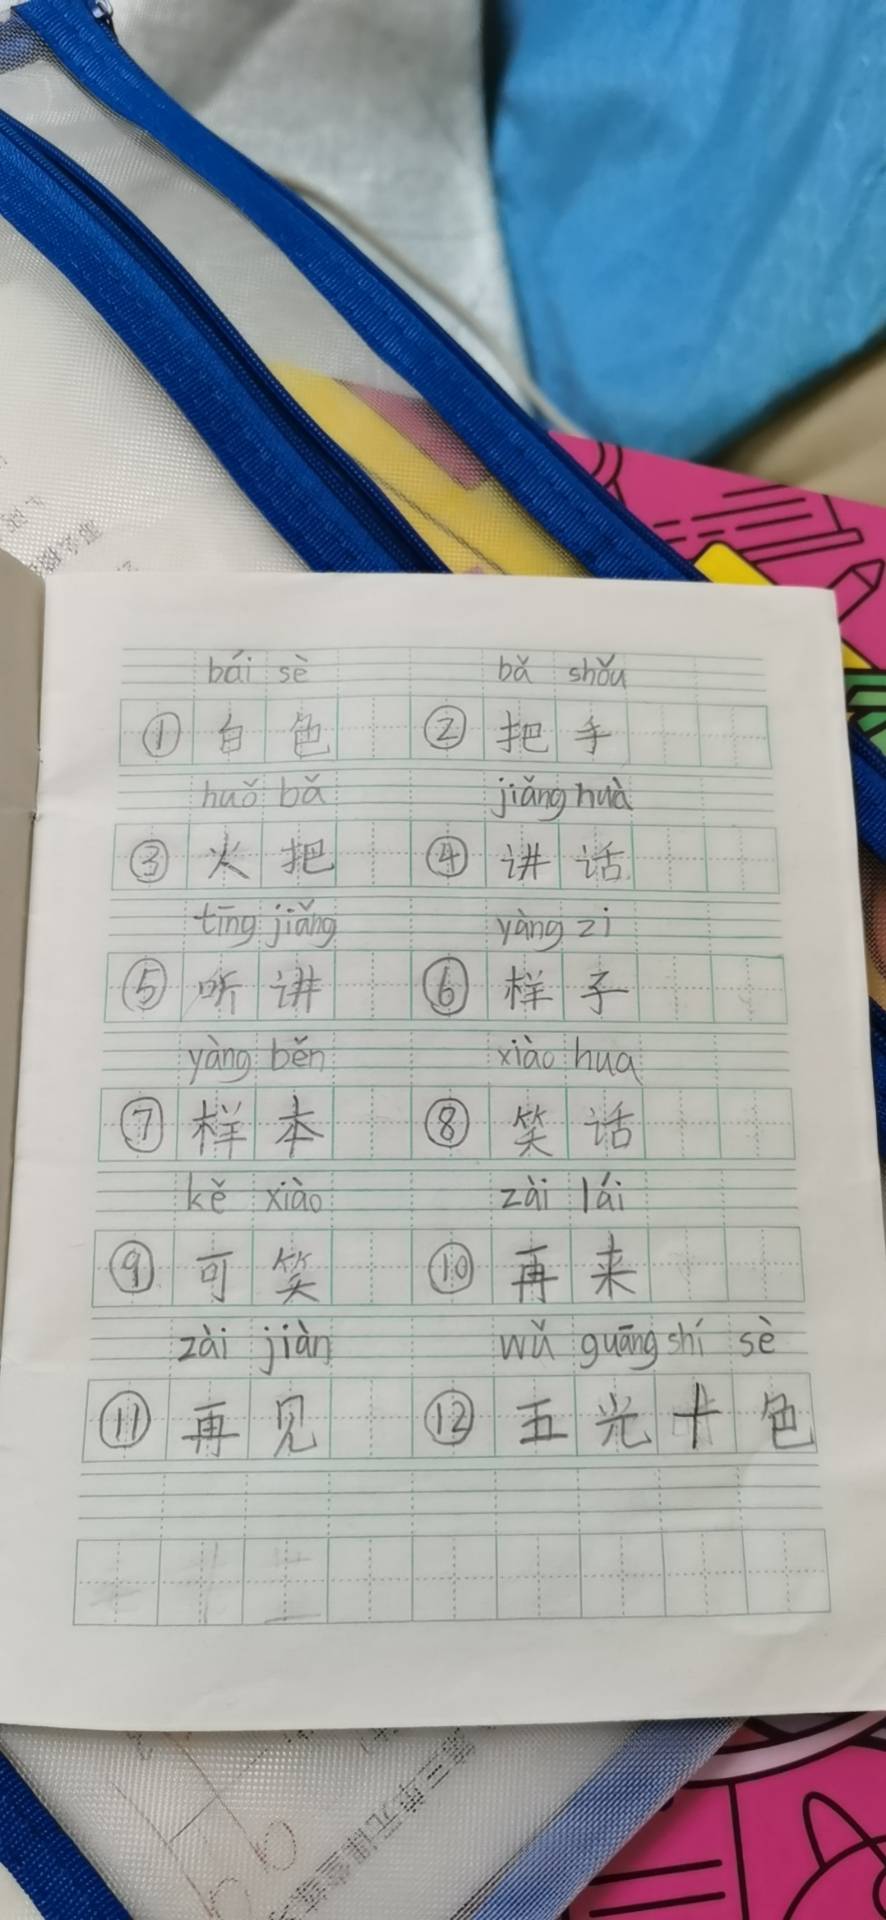 bái sè bǎ shǒu
①白色 ②把手
huǒ bǎ jiǎng huà
③火把 ④讲话
tīng jiǎng yàng zi
⑤听讲 ⑥样子
yàng běn xiào hua
⑦样本 ⑧笑话
kě xiào zài lái
⑨可笑 ⑩再来
zài jiàn wǔ guāng shí sè
⑪再见 ⑫五光十色